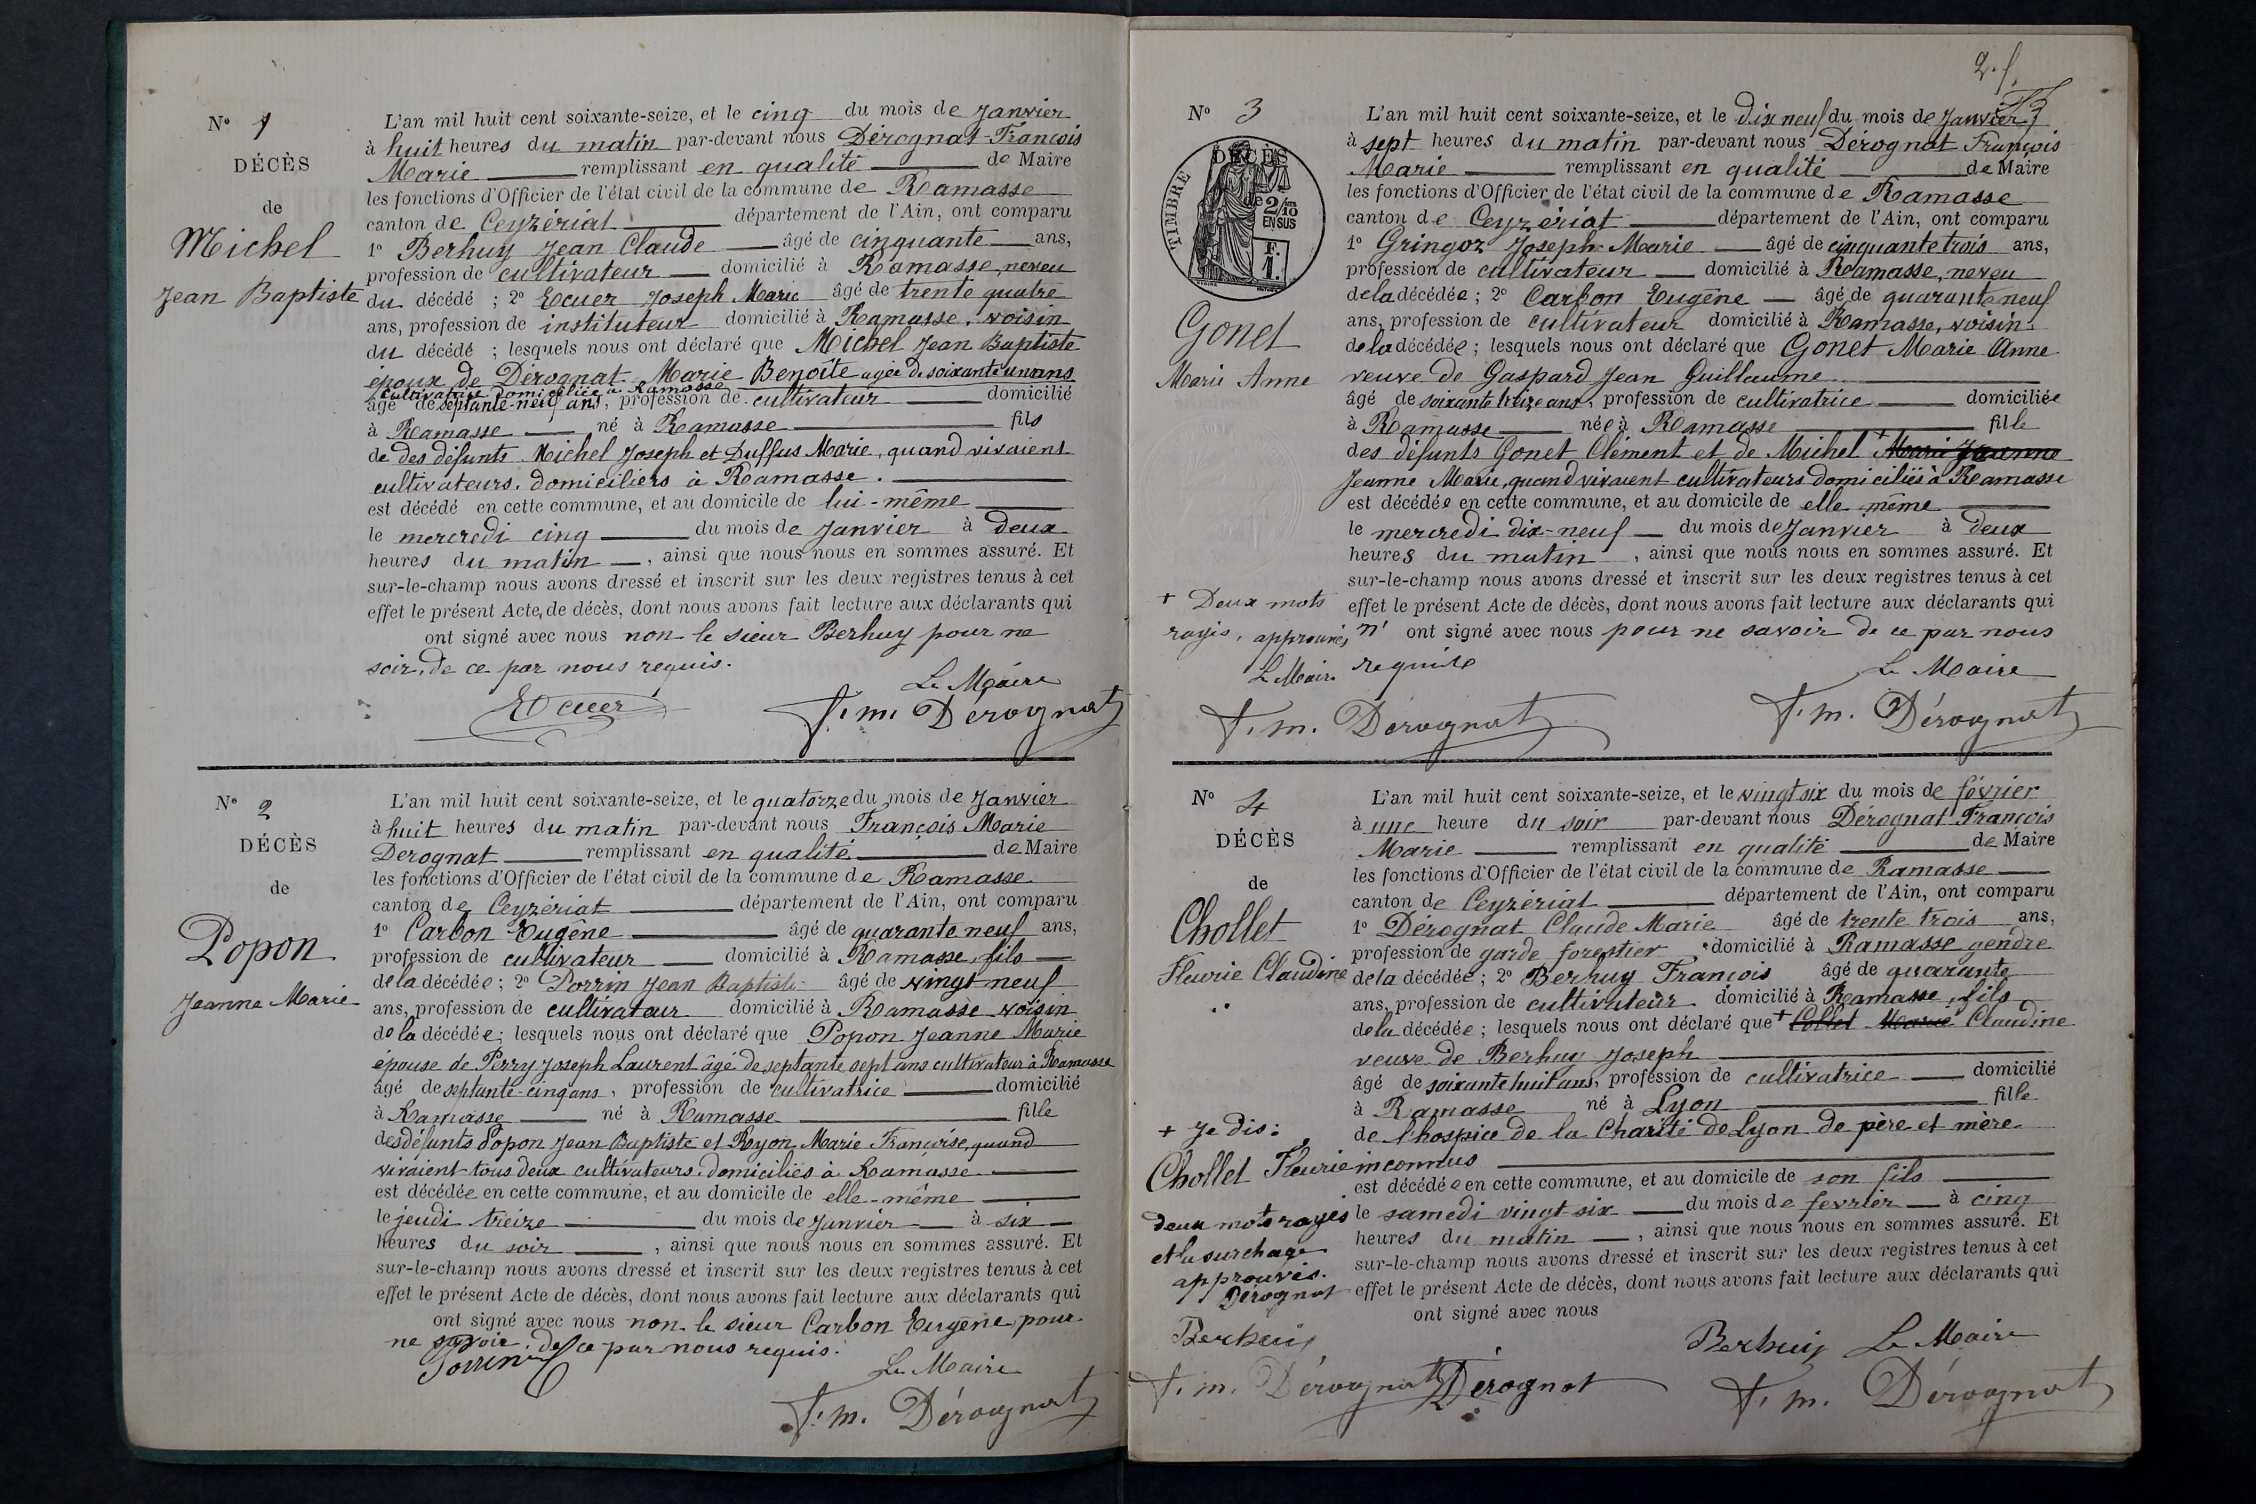 N° 1
DÉCÈS
de
Michel
Jean Baptiste
L'an mil huit cent soixante-seize, et le cinq du mois de Janvier
à huit heures du matin par-devant nous Dérognat François
Marie remplissant en qualité de Maire
les fonctions d'Officier de l'état civil de la commune de Ramasse
canton de Ceyzériat département de l'Ain, ont comparu
1° Berhuy Jean Claude âgé de cinquante ans,
profession de cultivateur domicilié à Ramasse, neveu
du décédé ; 2° Ecuer Joseph Marie âgé de trente quatre
ans, profession de instituteur domicilié à Ramasse, voisin
du décédé ; lesquels nous ont déclaré que Michel Jean Baptiste
époux de Dérognat Marie Benoîte agée de soixante un ans
cultivatrice domiciliée à Ramasse
âgé de septante-neuf ans, profession de cultivateur domicilié
à Ramasse né à Ramasse fils
de des défunts Michel Joseph et Duffus Marie, quand vivaient
cultivateurs, domiciliers à Ramasse.
est décédé en cette commune, et au domicile de lui-même
le mercredi cinq du mois de Janvier à deux
heures du matin, ainsi que nous nous en sommes assuré. Et
sur-le-champ nous avons dressé et inscrit sur les deux registres tenus à cet
effet le présent Acte, de décès, dont nous avons fait lecture aux déclarants qui
ont signé avec nous non le sieur Berhuy pour ne
soir, de ce par nous requis.
Le Maire
Ecuer F. m. Dérognat
N° 2
DÉCÈS
de
Popon
Jeanne Marie
L'an mil huit cent soixante-seize, et le quatorze du mois de Janvier
à huit heures du matin par-devant nous François Marie
Derognat remplissant en qualité de Maire
les fonctions d'Officier de l'état civil de la commune de Ramasse
canton de Ceyzériat département de l'Ain, ont comparu
1° Carbon Eugêne âgé de quarante neuf ans,
profession de cultivateur domicilié à Ramasse, fils
de la décédée ; 2° Perrin Jean Baptiste âgé de vingt neuf
ans, profession de cultivateur domicilié à Ramasse voisin
de la décédée ; lesquels nous ont déclaré que Popon Jeanne Marie
épouse de Perry Joseph Laurent âgé de septante sept ans cultivateur à Ramasse
âgé de septante-cinq ans, profession de cultivatrice domicilié
à Ramasse né à Ramasse fille
des défunts Popon Jean Baptiste et Royon Marie Françoise, quand
vivaient tous deux cultivateurs domiciliés à Ramasse
est décédée en cette commune, et au domicile de elle-même
le jeudi treize du mois de Janvier à six
heures du soir, ainsi que nous nous en sommes assuré. Et
sur-le-champ nous avons dressé et inscrit sur les deux registres tenus à cet
effet le présent Acte de décès, dont nous avons fait lecture aux déclarants qui
ont signé avec nous non le sieur Carbon Eugêne pour
ne savoir, de ce par nous requis.
Perrin Le Maire
F. m. Dérognat
2. f.
N° 3
DÉCÈS
TIMBRE
de 2/10
EN SUS
F.
1.
Gonet
Marie Anne
L'an mil huit cent soixante-seize, et le dix neuf du mois de Janvier
à sept heures du matin par-devant nous Dérognat François
Marie remplissant en qualité de Maire
les fonctions d'Officier de l'état civil de la commune de Ramasse
canton de Ceyzériat département de l'Ain, ont comparu
1° Gringoz Joseph Marie âgé de cinquante trois ans,
profession de cultivateur domicilié à Ramasse, neveu
de la décédée ; 2° Carbon Eugêne âgé de quarante neuf
ans, profession de cultivateur domicilié à Ramasse, voisin
de la décédée ; lesquels nous ont déclaré que Gonet Marie Anne
veuve de Gaspard Jean Guillaume
âgé de soixante treize ans, profession de cultivatrice domiciliée
à Ramasse née à Ramasse fille
des défunts Gonet Clément et de Michel + Marie Jeanne
Jeanne Marie, quand vivaient cultivateurs domiciliés à Ramasse
est décédée en cette commune, et au domicile de elle même
le mercredi dix-neuf du mois de Janvier à deux
heures du matin, ainsi que nous nous en sommes assuré. Et
sur-le-champ nous avons dressé et inscrit sur les deux registres tenus à cet
effet le présent Acte de décès, dont nous avons fait lecture aux déclarants qui
n' ont signé avec nous pour ne savoir de ce par nous
requise
+ Deux mots
rayés, approuvés
Le Maire
Le Maire
F. m. Dérognat F. m. Dérognat
N° 4
DÉCÈS
de
Chollet
Fleurie Claudine
L'an mil huit cent soixante-seize, et le vingt six du mois de février
à une heure du soir par-devant nous Dérognat François
Marie remplissant en qualité de Maire
les fonctions d'Officier de l'état civil de la commune de Ramasse
canton de Ceyzériat département de l'Ain, ont comparu
1° Dérognat Claude Marie âgé de trente trois ans,
profession de garde forestier domicilié à Ramasse gendre
de la décédée ; 2° Berhuy François âgé de quarante
ans, profession de cultivateur domicilié à Ramasse, fils
de la décédée ; lesquels nous ont déclaré que + Collet Marie Claudine
veuve de Berhuy Joseph
âgé de soixante huit ans, profession de cultivatrice domicilié
à Ramasse né à Lyon fille
de l'hospice de la Charité de Lyon de père et mère
inconnus
est décédée en cette commune, et au domicile de son fils
le samedi vingt six du mois de fevrier à cinq
heures du matin, ainsi que nous nous en sommes assuré. Et
sur-le-champ nous avons dressé et inscrit sur les deux registres tenus à cet
effet le présent Acte de décès, dont nous avons fait lecture aux déclarants qui
ont signé avec nous
+ Je dis :
Chollet Fleurie
deux mots rayés
et la surchage
approuvés.
Dérognat
Berhuy
Berhuy Le Maire
F. m. Dérognat Dérognat F. m. Dérognat